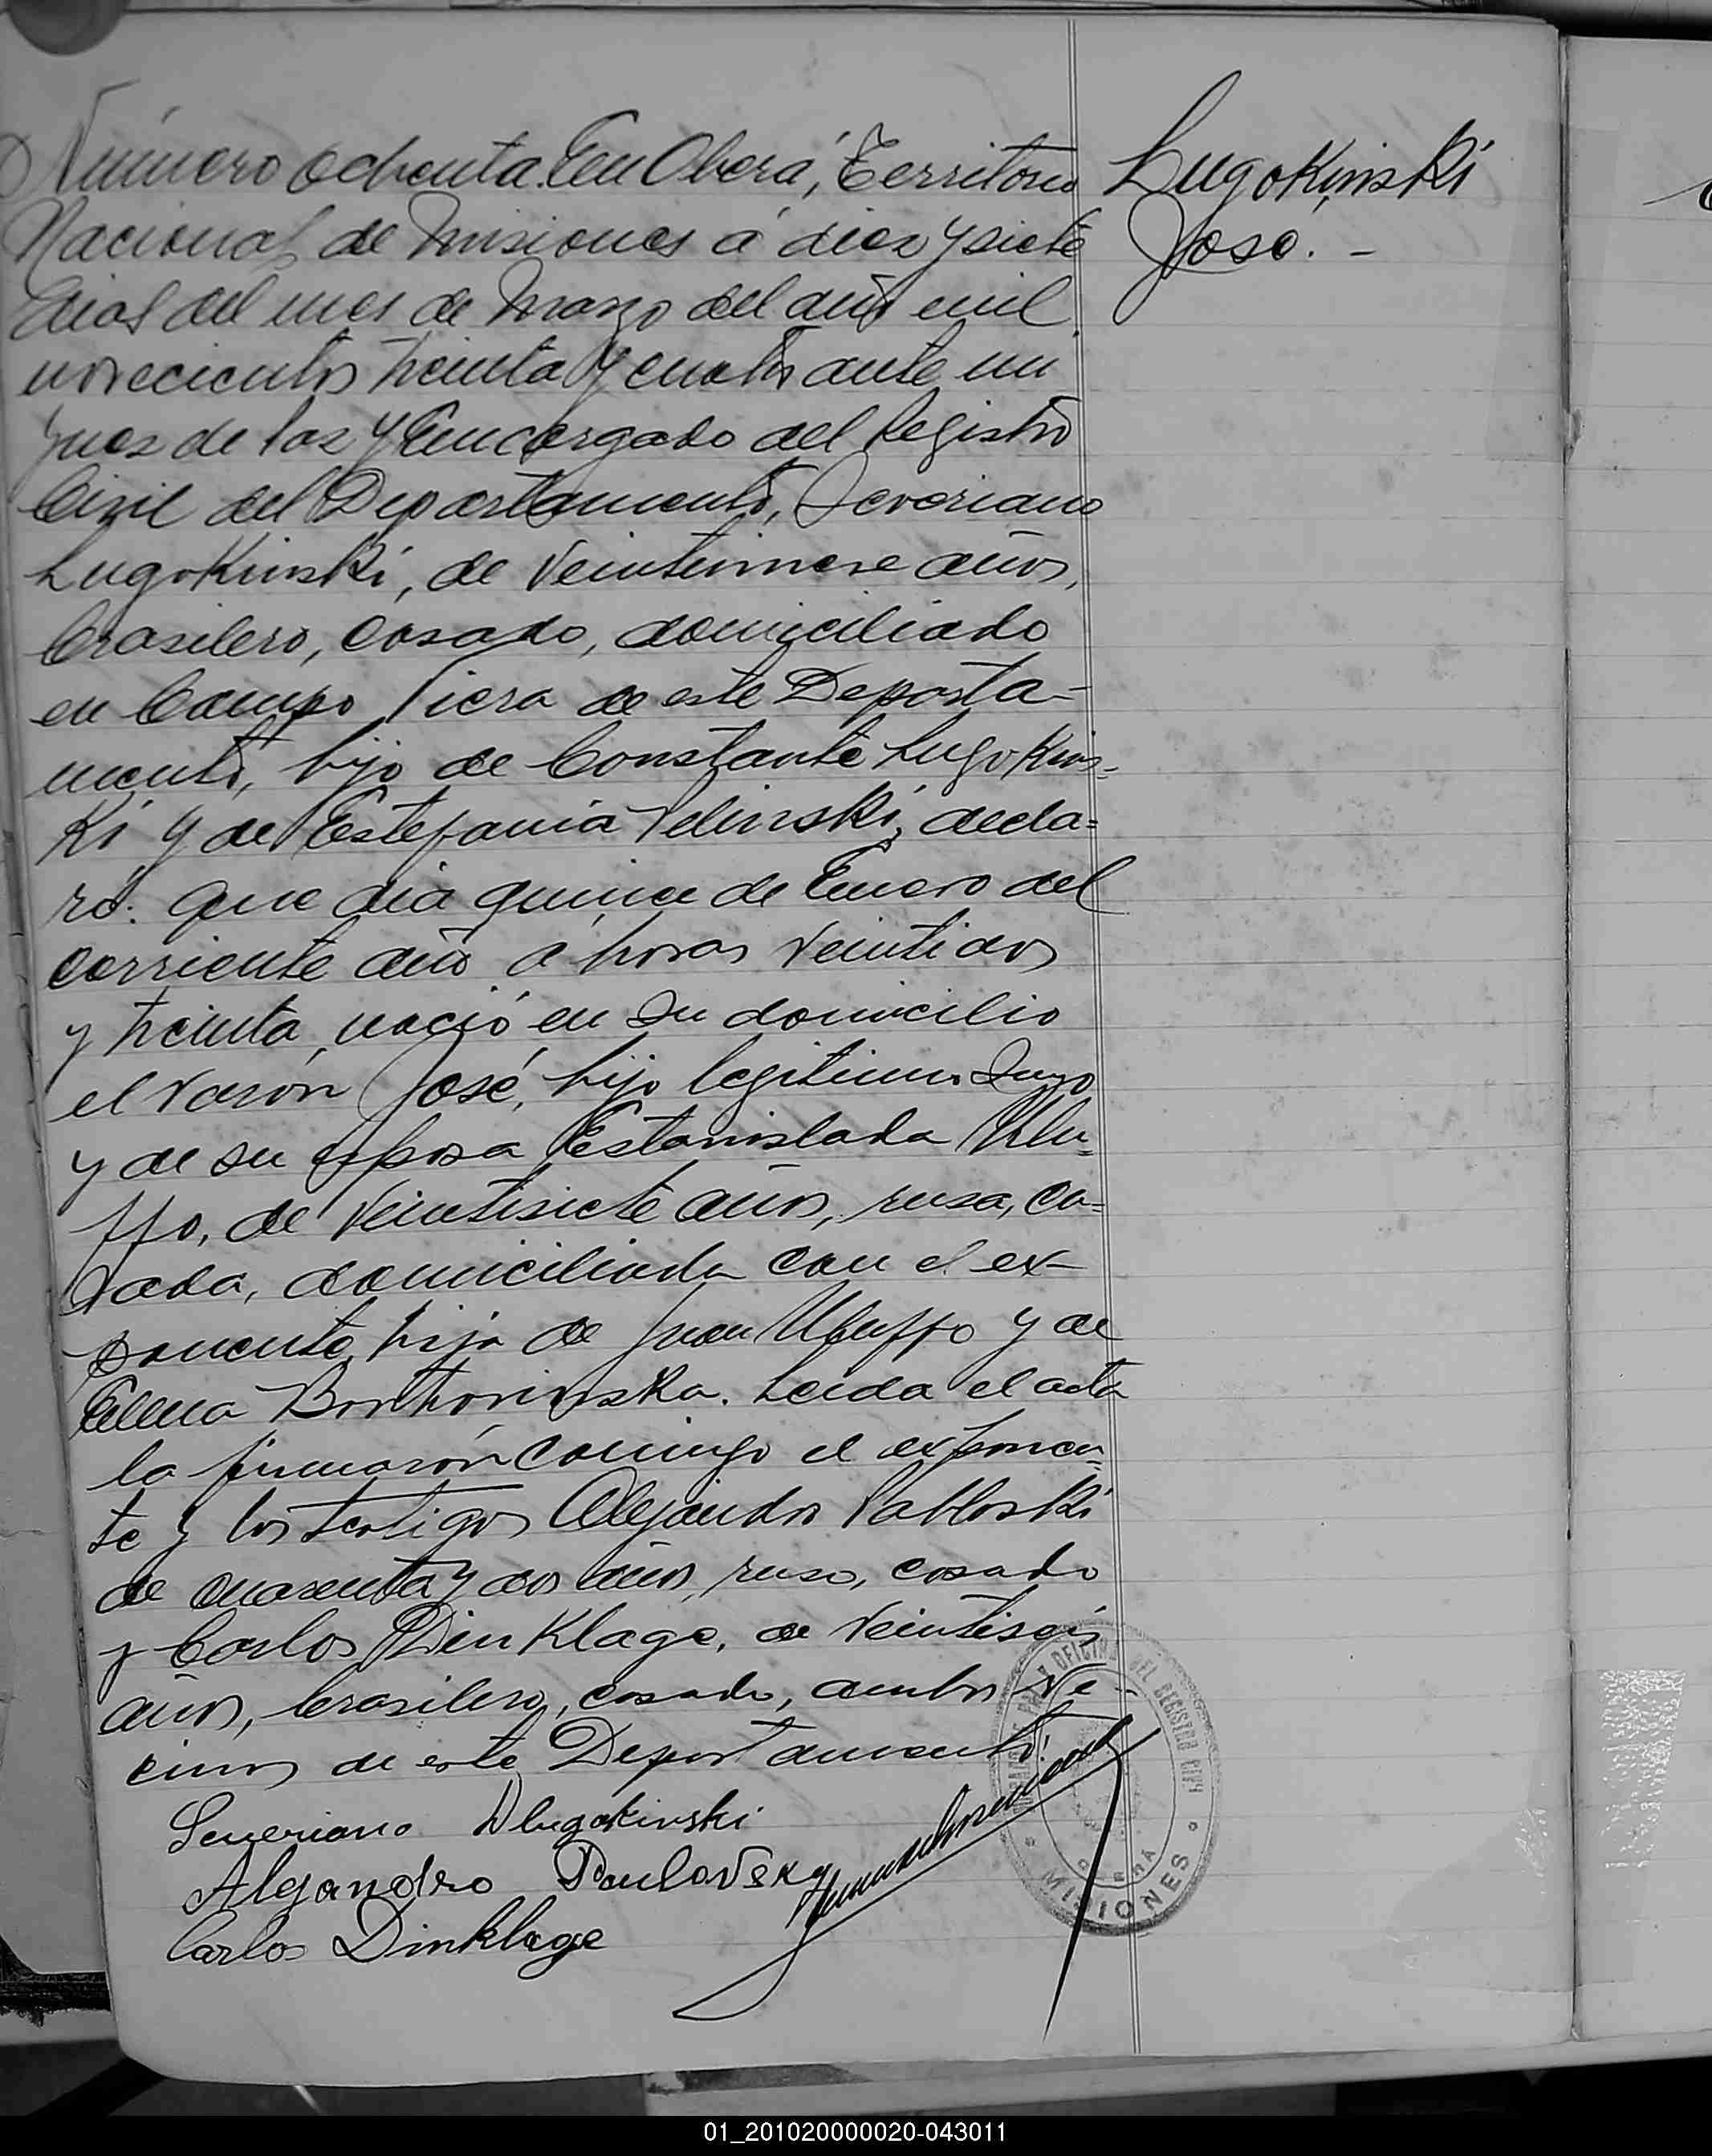 Número ochenta. En Oberá, Territorio
Nacional de Misiones á diez y siete
dias del mes de Marzo del año mil
novecientos treinta y cuatro ante mi
Juez de Paz y Encargado del Registro
Civil del Departamento, Severiano
LugoKinski, de veintinueve años,
brasilero, casado, domiciliado
en Campo Viera de este Departa-
mento, hijo de Constante LugoKins-
Ki y de Estefania Velinski, decla=
ró: que dia quince de Enero del
corriente año á horas veintidos
y treinta, nació en su domicilio
el varón José, hijo legitimo suyo
y de su esposa Estanislada
de veintisiete años, rusa, ca=
sada, domiciliada con el ex-
ponente, hija de Juan y de
Elena Leida el acta
la firmarón conmigo el exponen=
te y los testigos Alejandro Pabloski
de cuarenta y dos años, ruso, casado
y Carlos DinKlage, de veintiseis
años, brasilero, casado, ambos ve-
cinos de este Departamento.
Severiano Dlugokinski
Alejandro Paulovsky
Carlos Dinklage
LugoKinski
José. -
JUZGADO DE PAZ Y OFICINA DEL REGISTRO CIVIL
OBERÁ
MISIONES
01_201020000020-043011